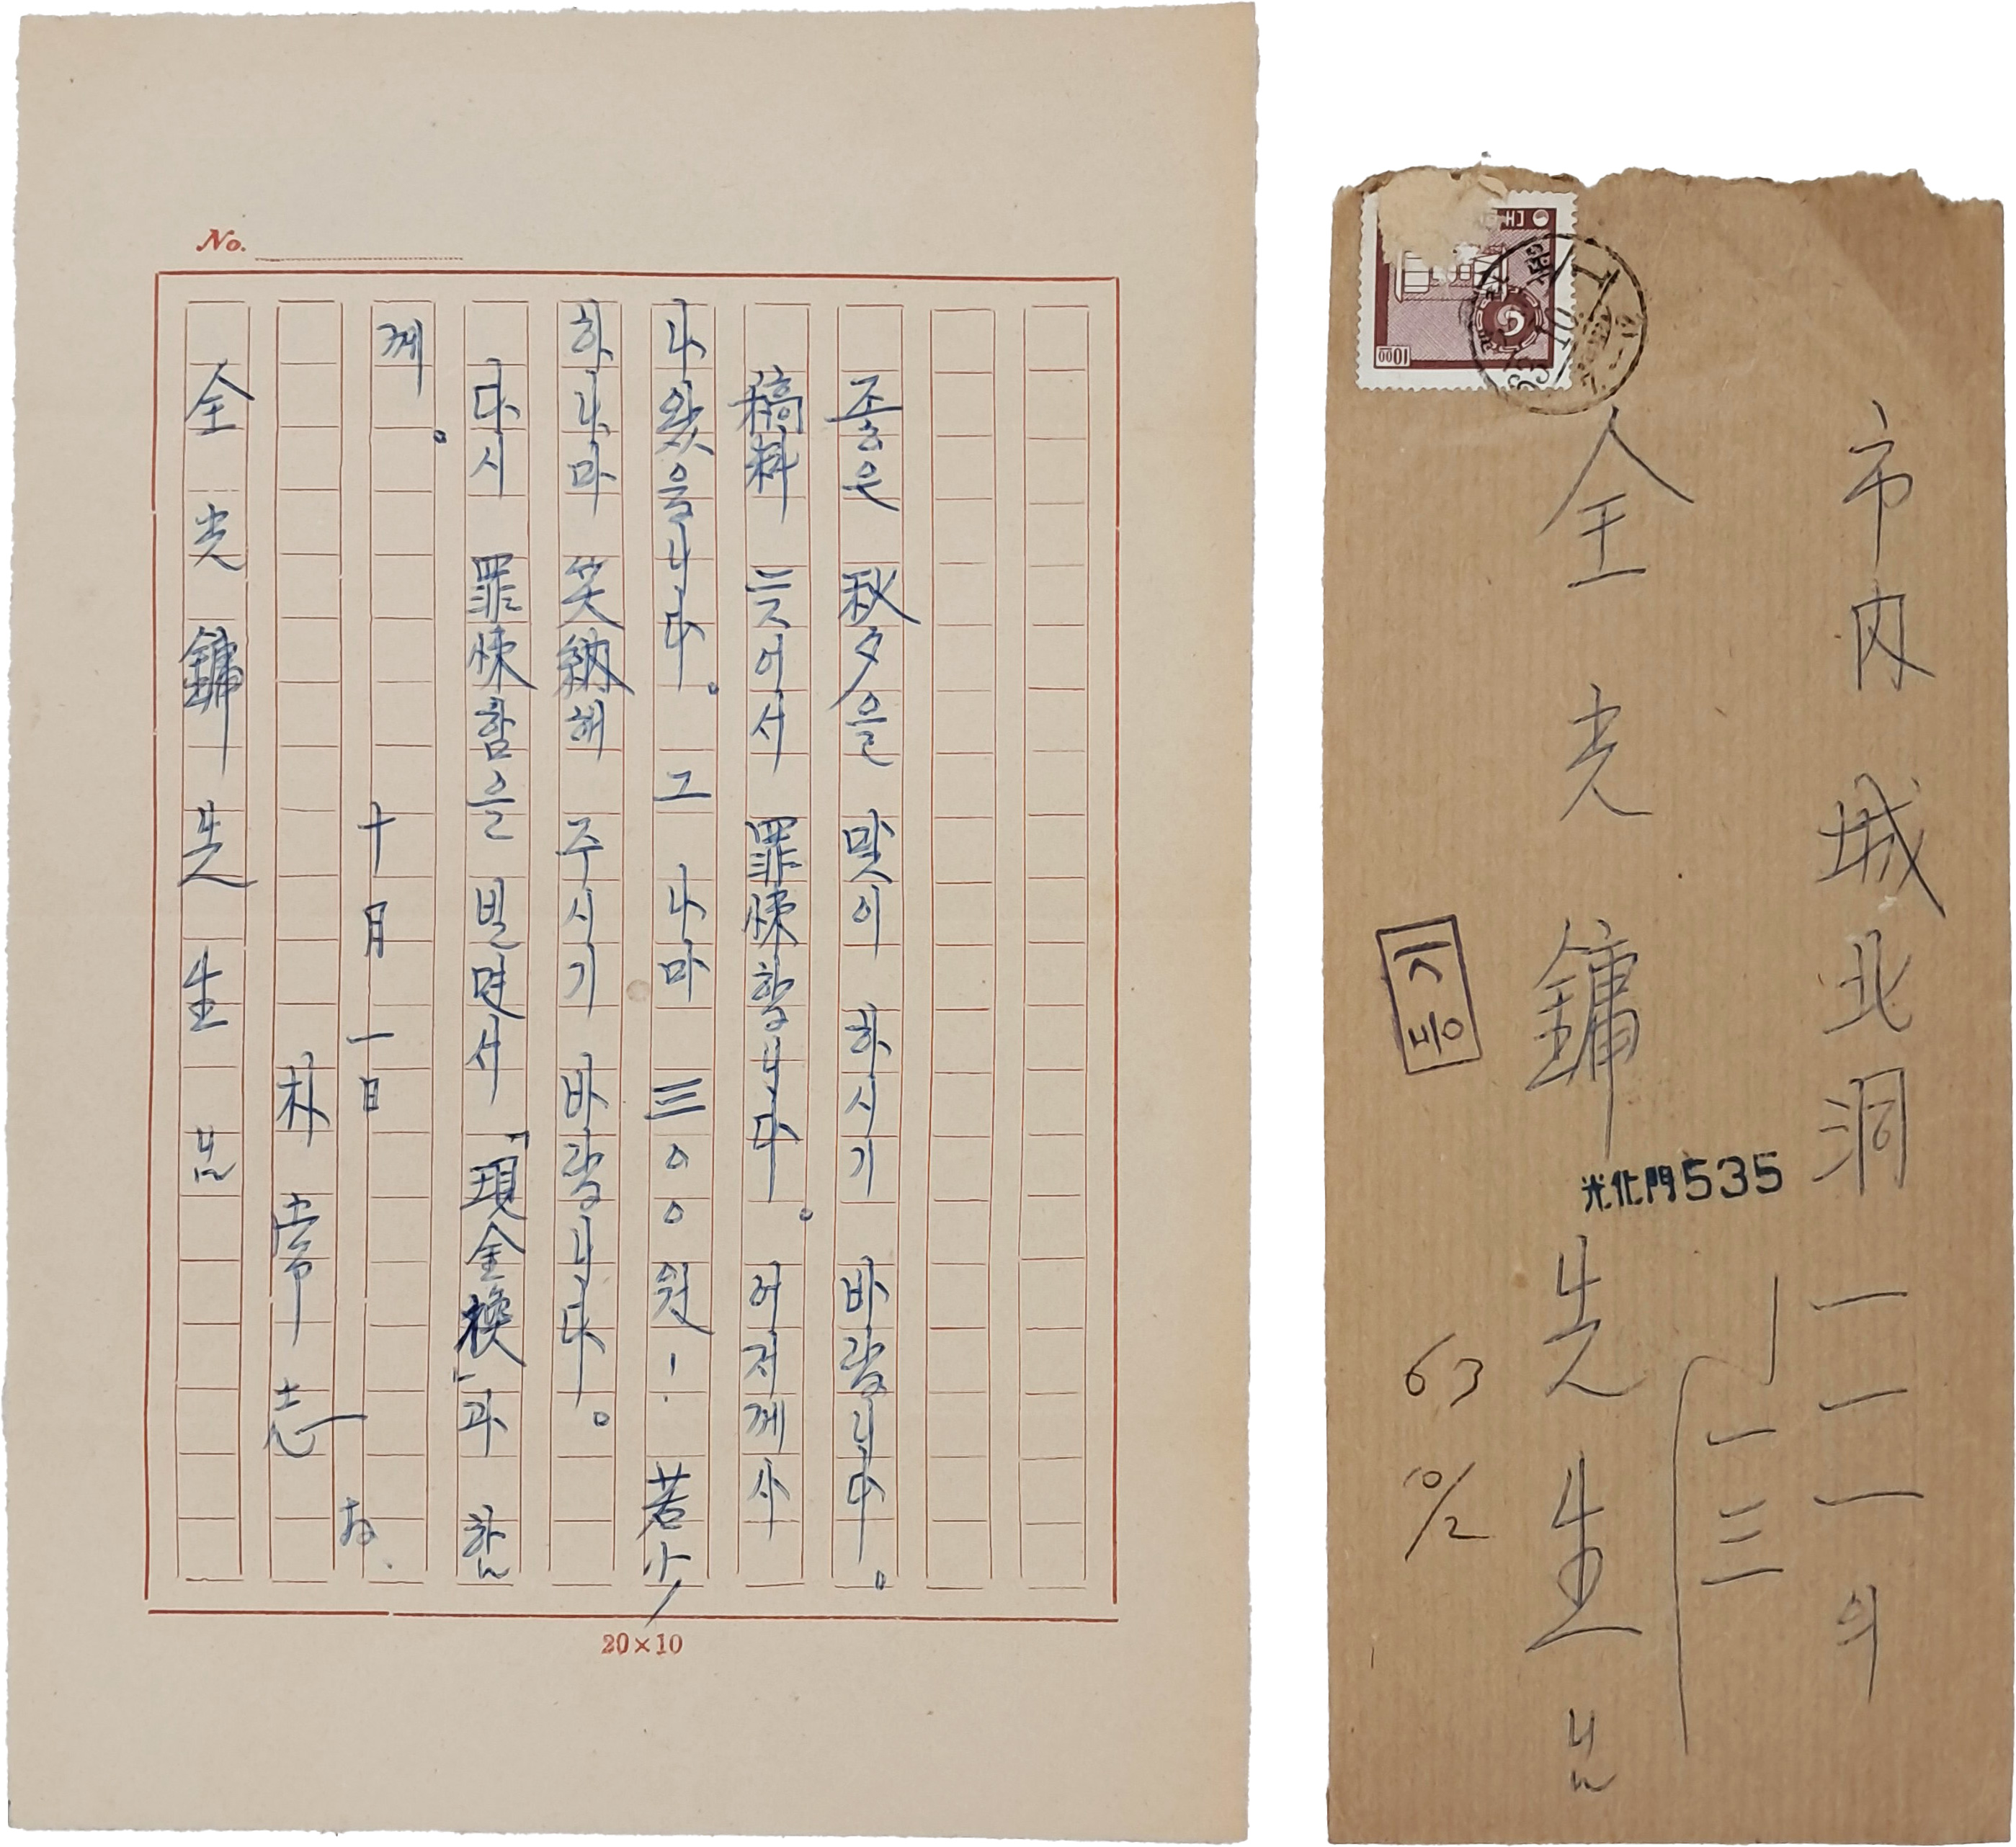 No.
좋은 秋夕을 맞이 하시기 바랍니다。
稿料 늦어서 罪悚합니다。 어저께사
나왔읍니다。 그 나마 三〇〇원! 若少
하나마 笑納해 주시기 바랍니다。
다시 罪悚함을 빌면서 「現金換」과 함
께。
十月 一日
朴常志
全光鏞 先生
20×10
市內 城北洞 一一一의
一三
全光鏞 先生
光化門535
등기
63
10/2
1000